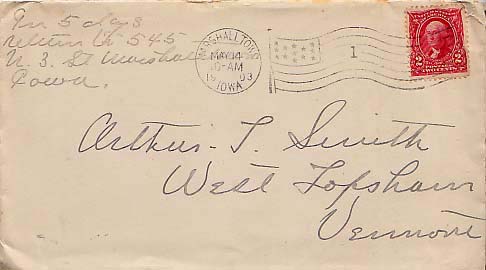 In 5 days
return to 545
N. 3. St Marshall
Iowa.
MARSHALLTOWN
MAY 14
-AM
1903
IOWA
1
TWO CENTS
Arthur T. Smith
West Topsham
Vermont